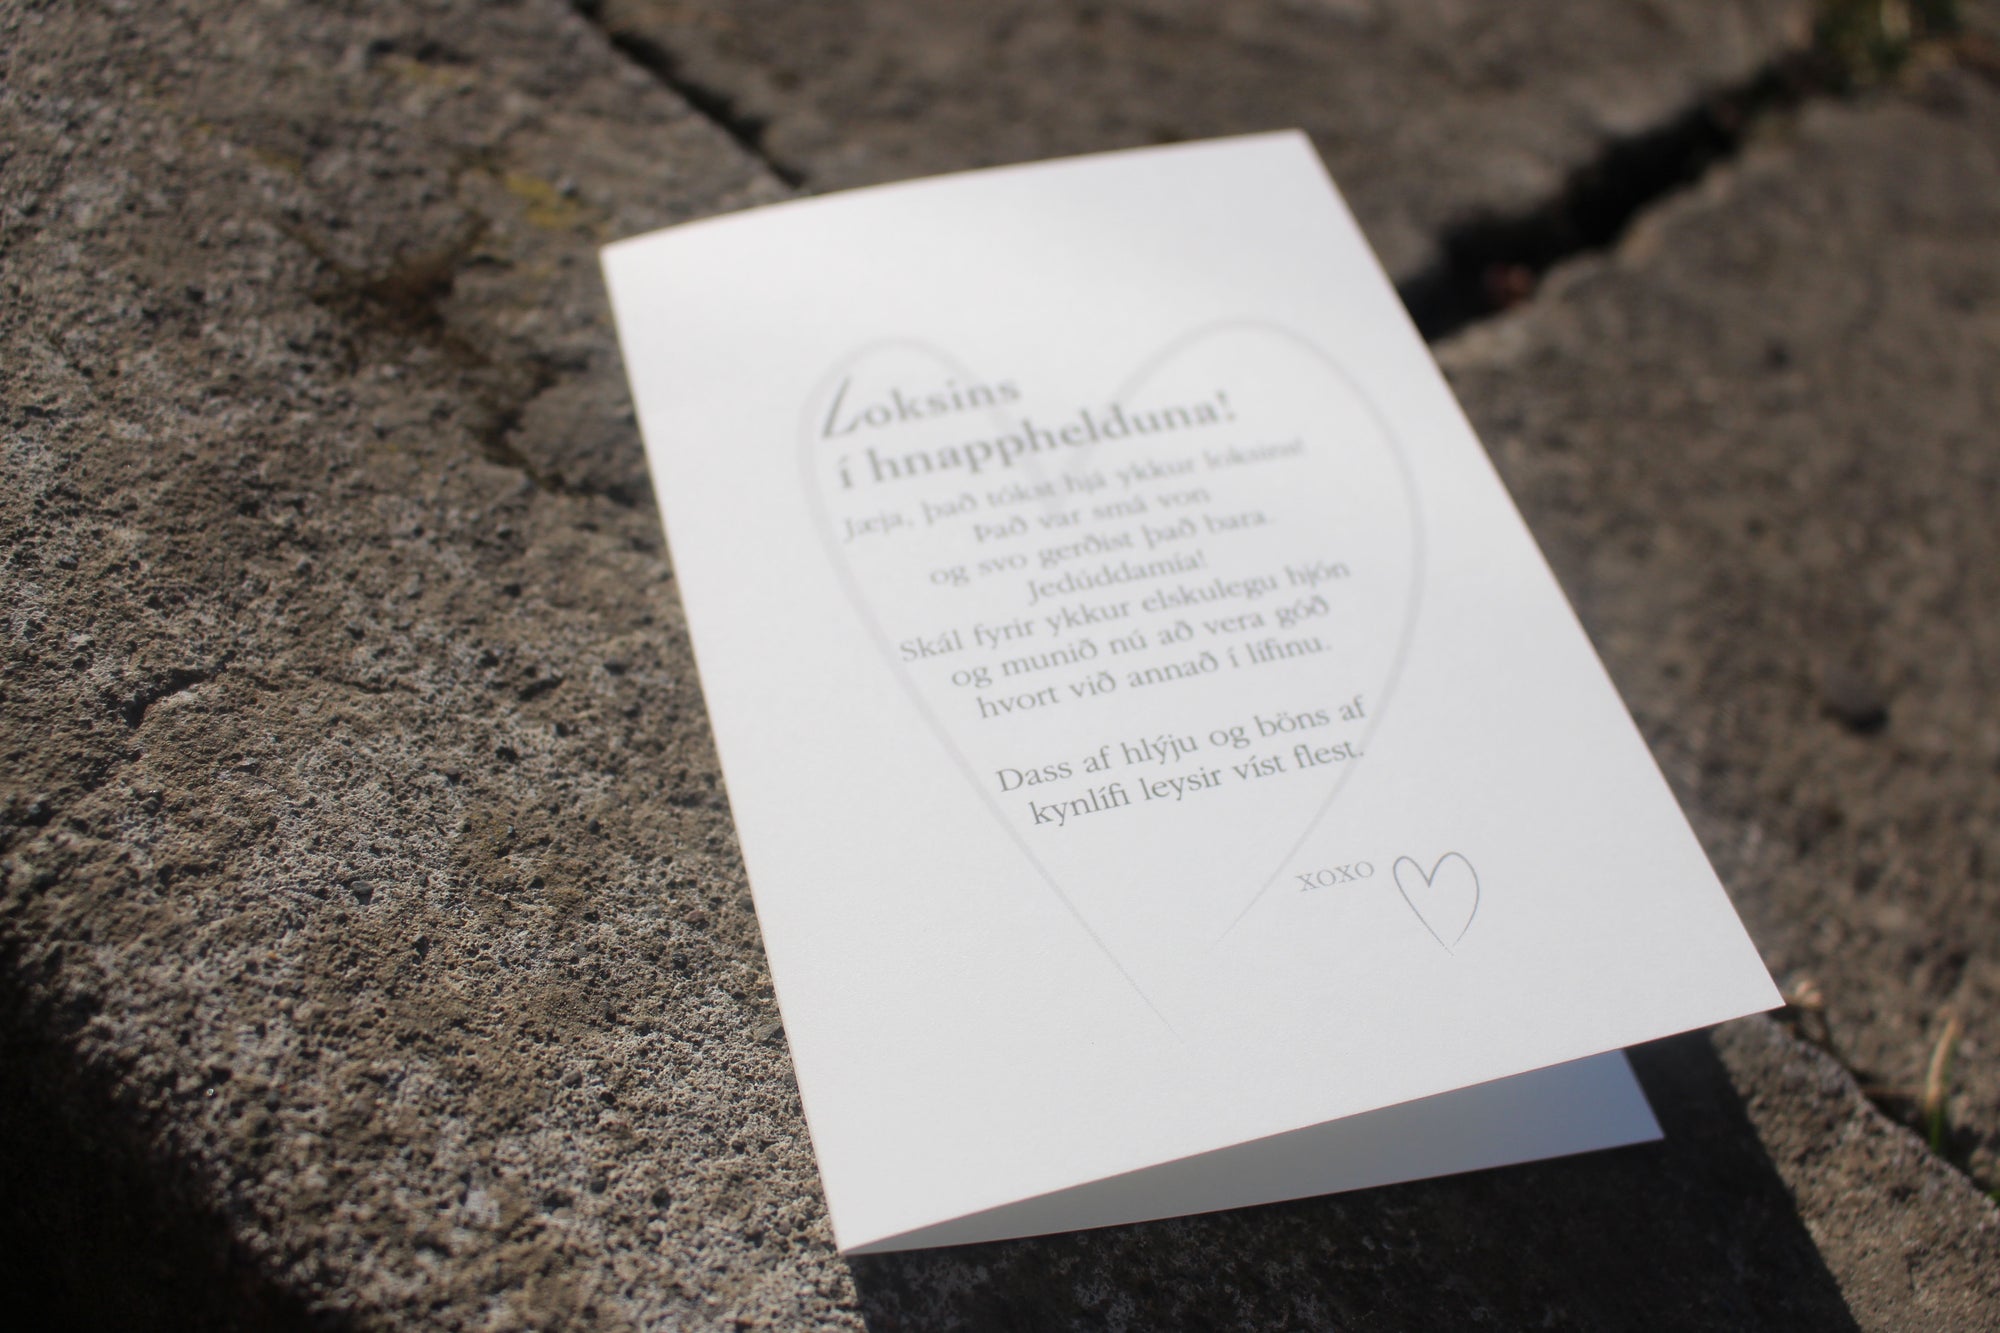 Loksins
í hnapphelduna!
Jæja, það tókst hjá ykkur loksins!
Það var smá von
og svo gerðist það bara.
Jedúddamía!
Skál fyrir ykkur elskulegu hjón
og munið nú að vera góð
hvort við annað í lífinu.
Dass af hlýju og böns af
kynlífi leysir víst flest.
xoxo